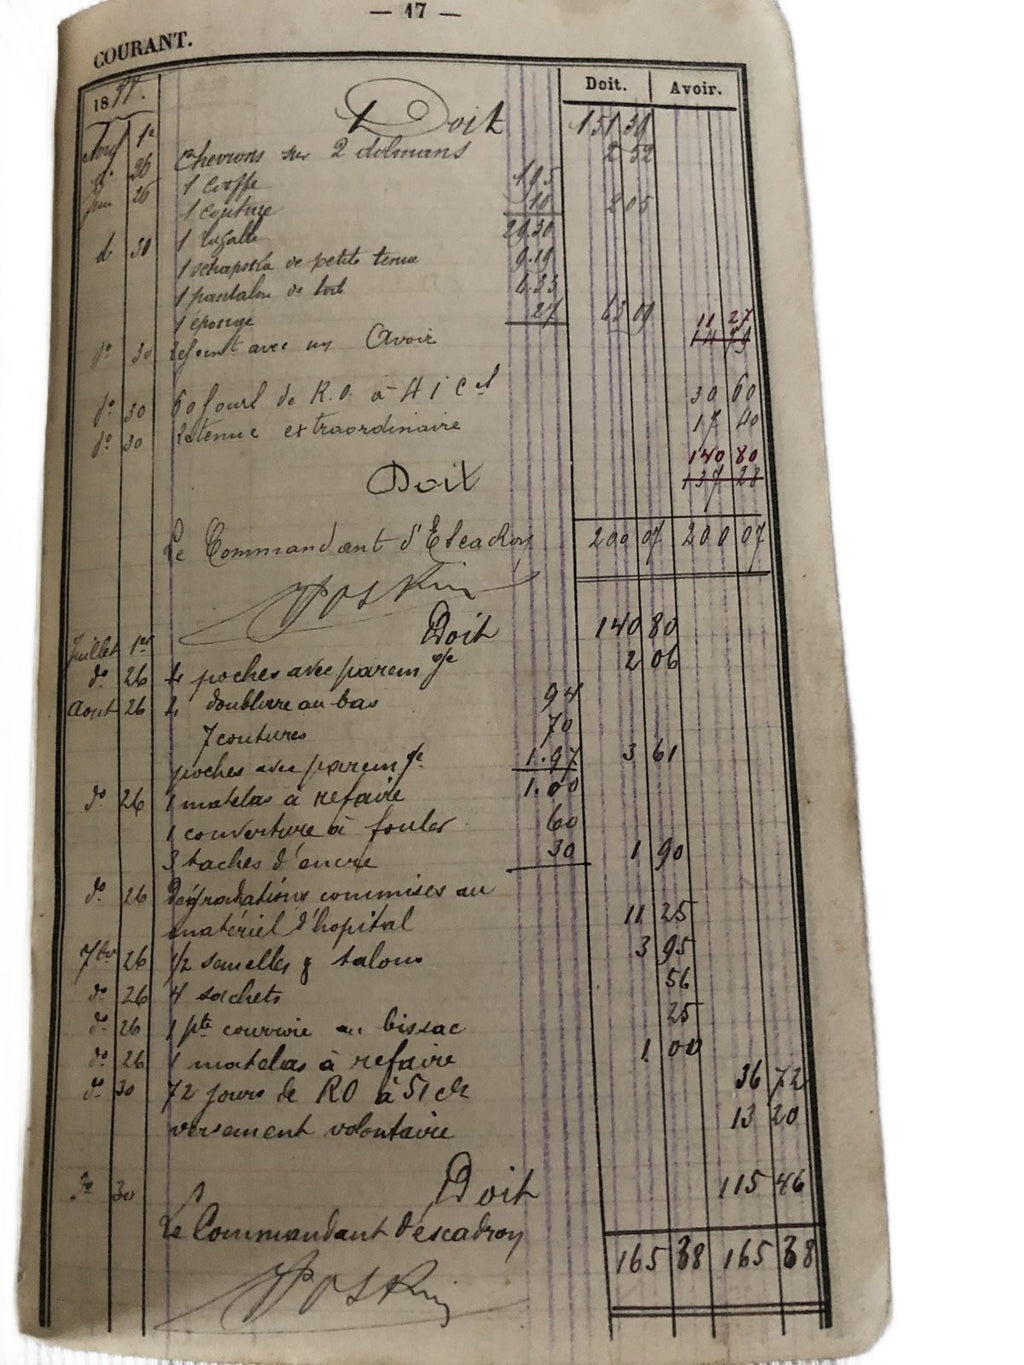 — 17 —
COURANT.
18 Doit. Avoir.
1er Doit 151 39
26 Chevrons sur 2 dolmans 2 52
Juin 26 1 Coiffe 195
1 couture 10 2 05
do 30 1 20.30
1 schapska de petite tenue 9.19
1 pantalon de toil 4.33
1 éponge 27
do 30 avec un Avoir 11 27
14 79
do 30 60 jours de R.O. à 51 Ces 30 60
do 30 Retenue extraordinaire 17 40
140 80
Doit 137 28
Le Commandant d'Escadron 200 07 200 07
Poskin
Juillet 1er Doit 140 80
do 26 4 poches avec parem ge 2 06
Aout 26 4 doublure au bas 94
7 coutures 70
poches avec parem ge 1.97 3 61
do 26 1 matelas à refaire 1.00
1 couverture à fouler 60
3 taches d'encre 30 1 90
do 26 Dégradations commises au
matériel d'hopital 11 25
7bre 26 1/2 semelles & talons 3 95
do 26 4 sachets 56
do 26 1 pte courroie au bissac 25
do 26 1 matelas à refaire 1 00
do 30 72 jours de RO à 51 cts 36 72
versement volontaire 13 20
do 30 Doit 115 46
Le Commandant d'éscadron
165 38 165 38
Poskin